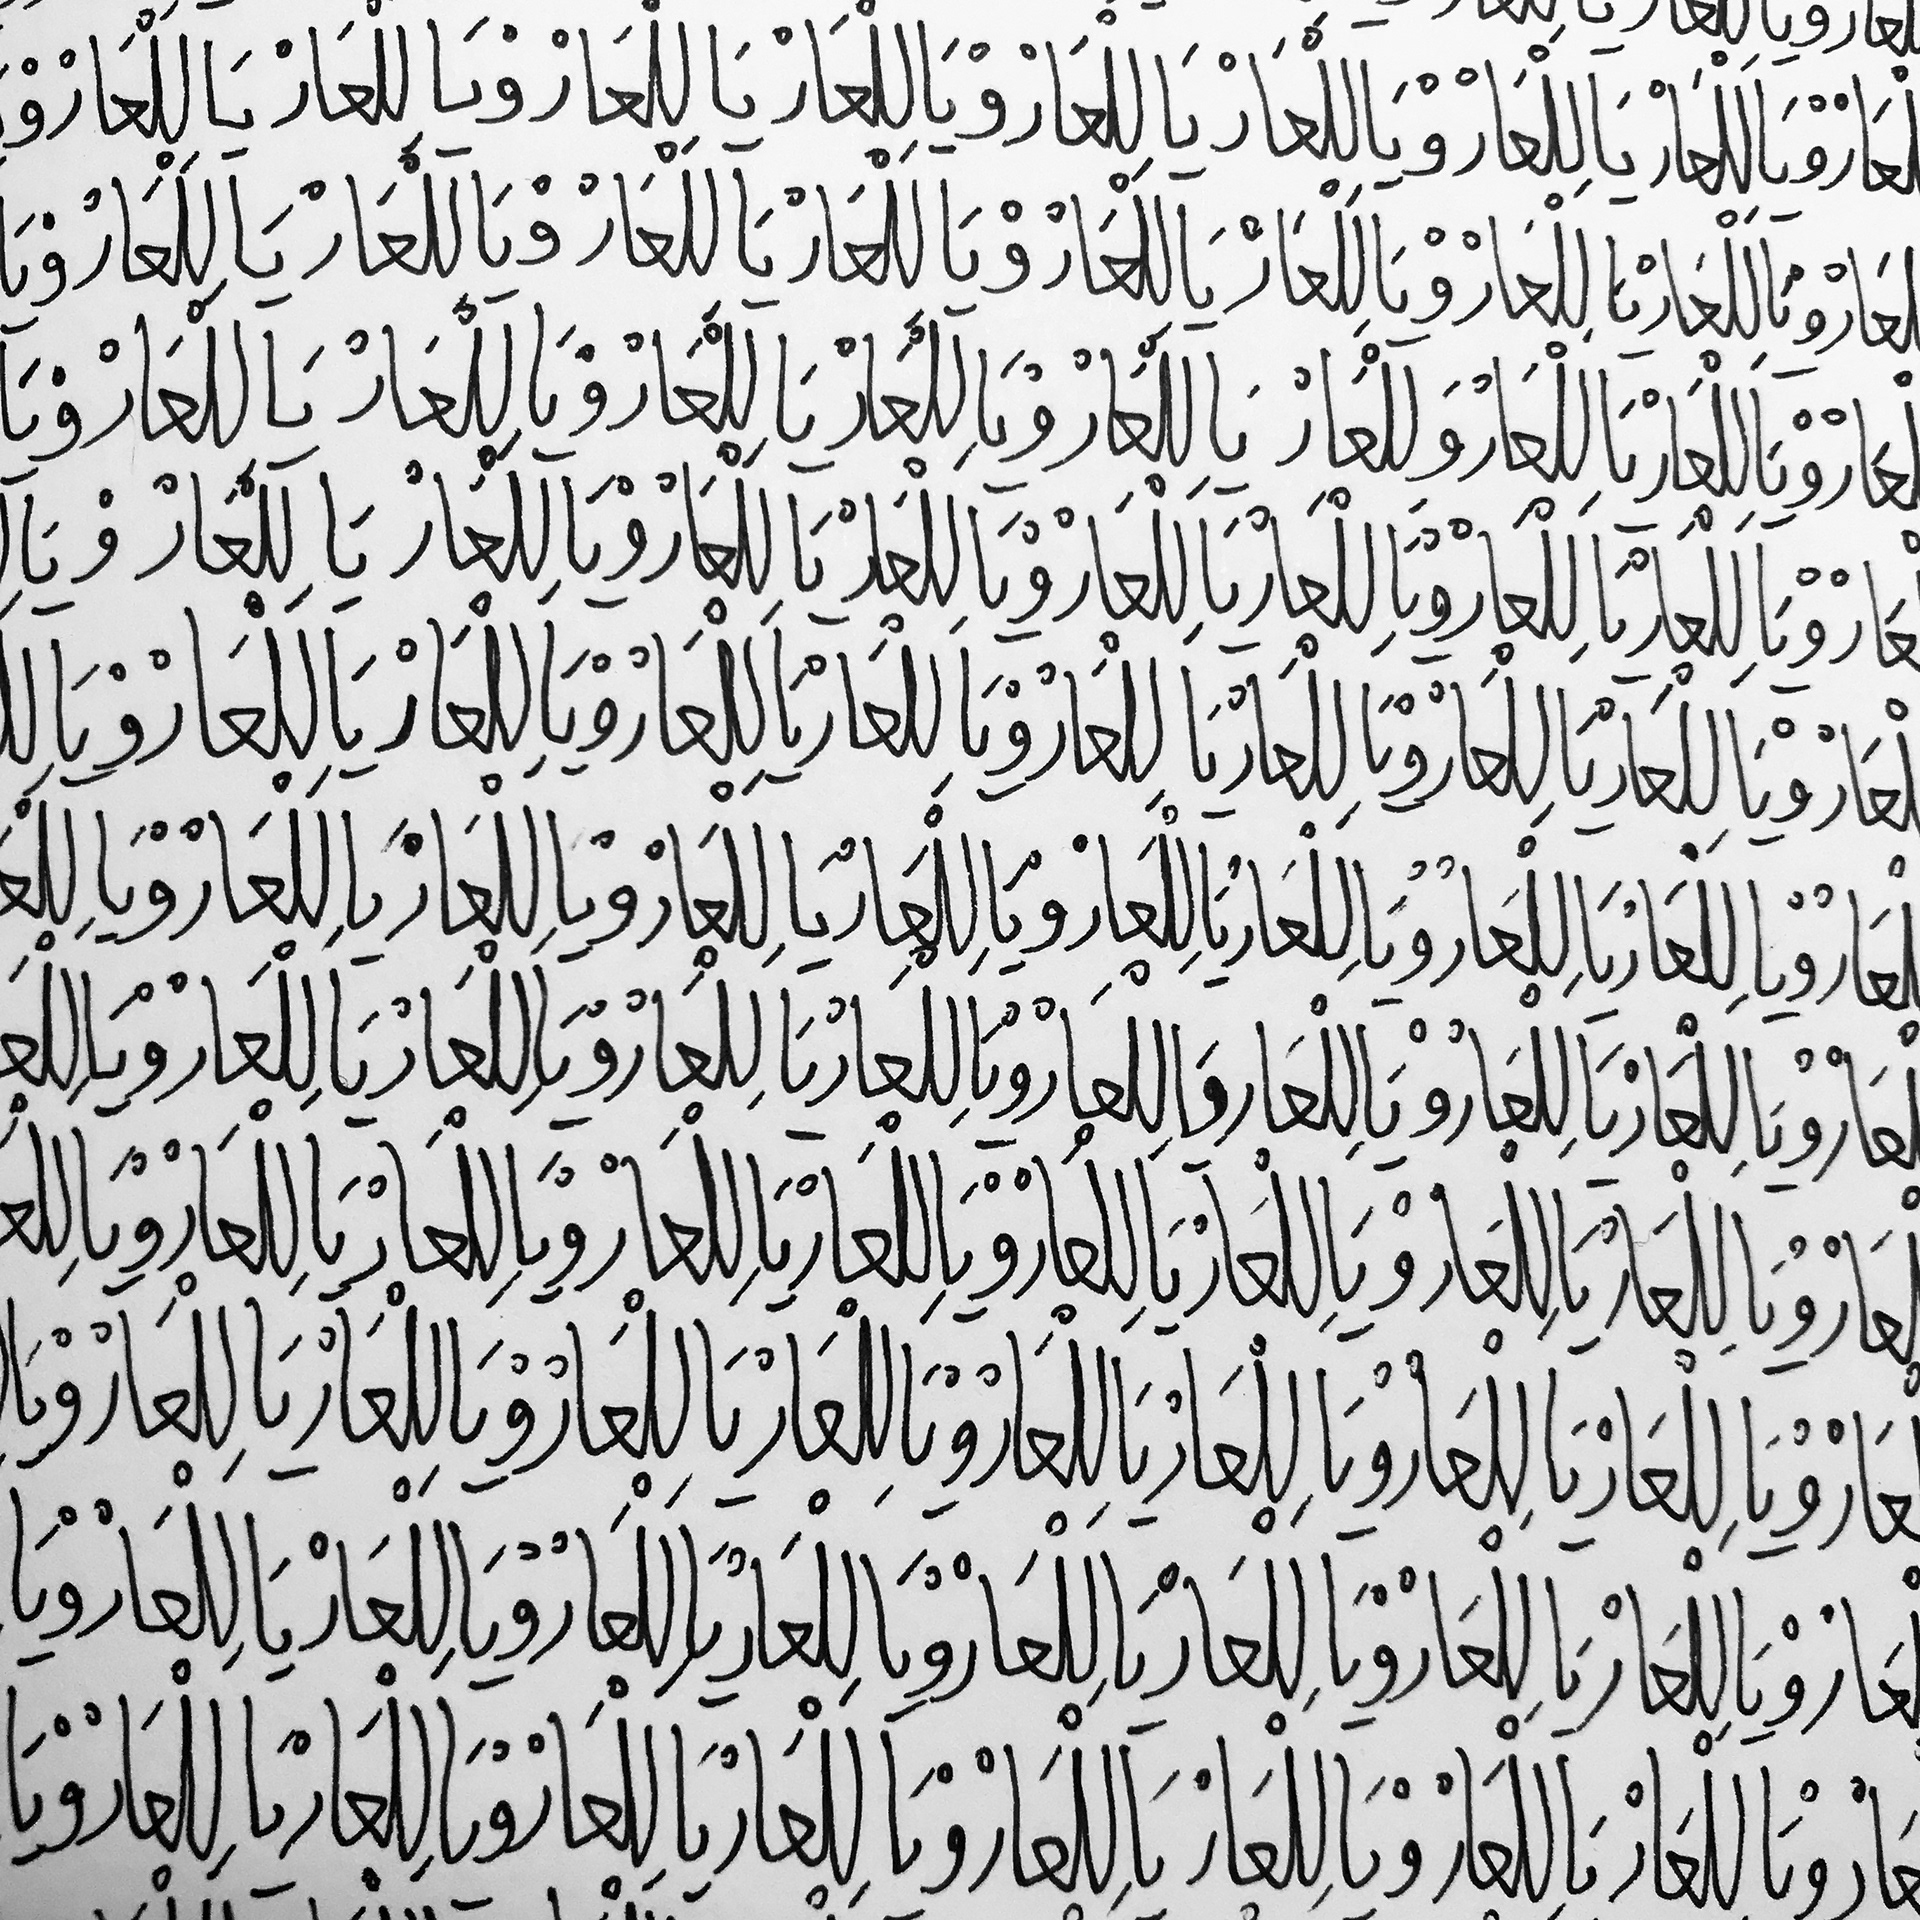 لعار ويا للعار يا للعار ويا للعار يا للعار ويا للعار يا للعار ويا للعار يا للعار و
لعار ويا للعار يا للعار ويا للعار يا للعار ويا للعار يا للعار ويا للعار يا للعار ويا
لعار ويا للعار يا للعار و للعار يا للعار ويا للعار يا للعار ويا للعار يا للعار ويا
لعار ويا للعار يا للعار ويا للعار يا للعار ويا للعار يا للعار ويا للعار يا للعار ويا
لعار ويا للعار يا للعار ويا للعار يا للعار ويا للعار يا للعار ويا للعار يا للعار ويا
لعار ويا للعار يا للعار ويا للعار يا للعار ويا للعار يا للعار ويا للعار يا للعار ويا
لعار ويا للعار يا للعار ويا للعار وا للعار ويا للعار يا للعار ويا للعار يا للعار ويا
لعار ويا للعار يا للعار ويا للعار يا للعار ويا للعار يا للعار ويا للعار يا للعار ويا
لعار ويا للعار يا للعار ويا للعار يا للعار ويا للعار يا للعار ويا للعار يا للعار ويا
لعار ويا للعار يا للعار ويا للعار يا للعار ويا للعار يا للعار ويا للعار يا للعار ويا
لعار ويا للعار يا للعار ويا للعار يا للعار ويا للعار يا للعار ويا للعار يا للعار ويا